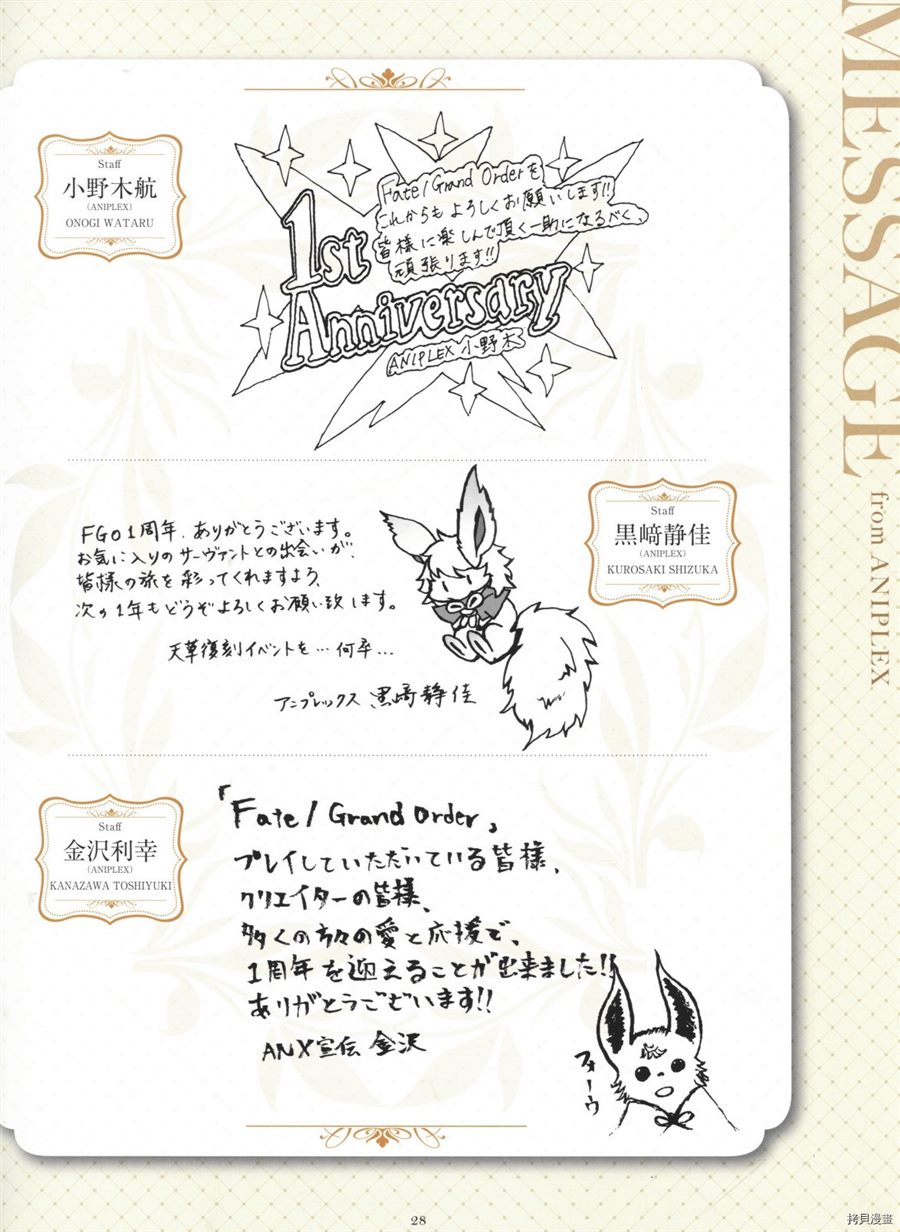 MESSAGE
from ANIPLEX
Staff
小野木航
(ANIPLEX)
ONOGI WATARU
Fate/Grand Orderを
これからもよろしくお願いします!!
皆様に楽しんで頂く一助になるべく、
頑張ります!!
1st
Anniversary
ANIPLEX 小野木
Staff
黒﨑静佳
(ANIPLEX)
KUROSAKI SHIZUKA
FGO1周年、ありがとうございます。
お気に入りのサーヴァントとの出会いが、
皆様の旅を彩ってくれますよう、
次の1年もどうぞよろしくお願い致します。
天草復刻イベントを…何卒…
アニプレックス 黒﨑静佳
Staff
金沢利幸
(ANIPLEX)
KANAZAWA TOSHIYUKI
「Fate/Grand Order」
プレイしていただいている皆様、
クリエイターの皆様、
多くの方々の愛と応援で、
1周年を迎えることが出来ました!!
ありがとうございます!!
ANX宣伝 金沢
フォーウ
28
拷貝漫畫